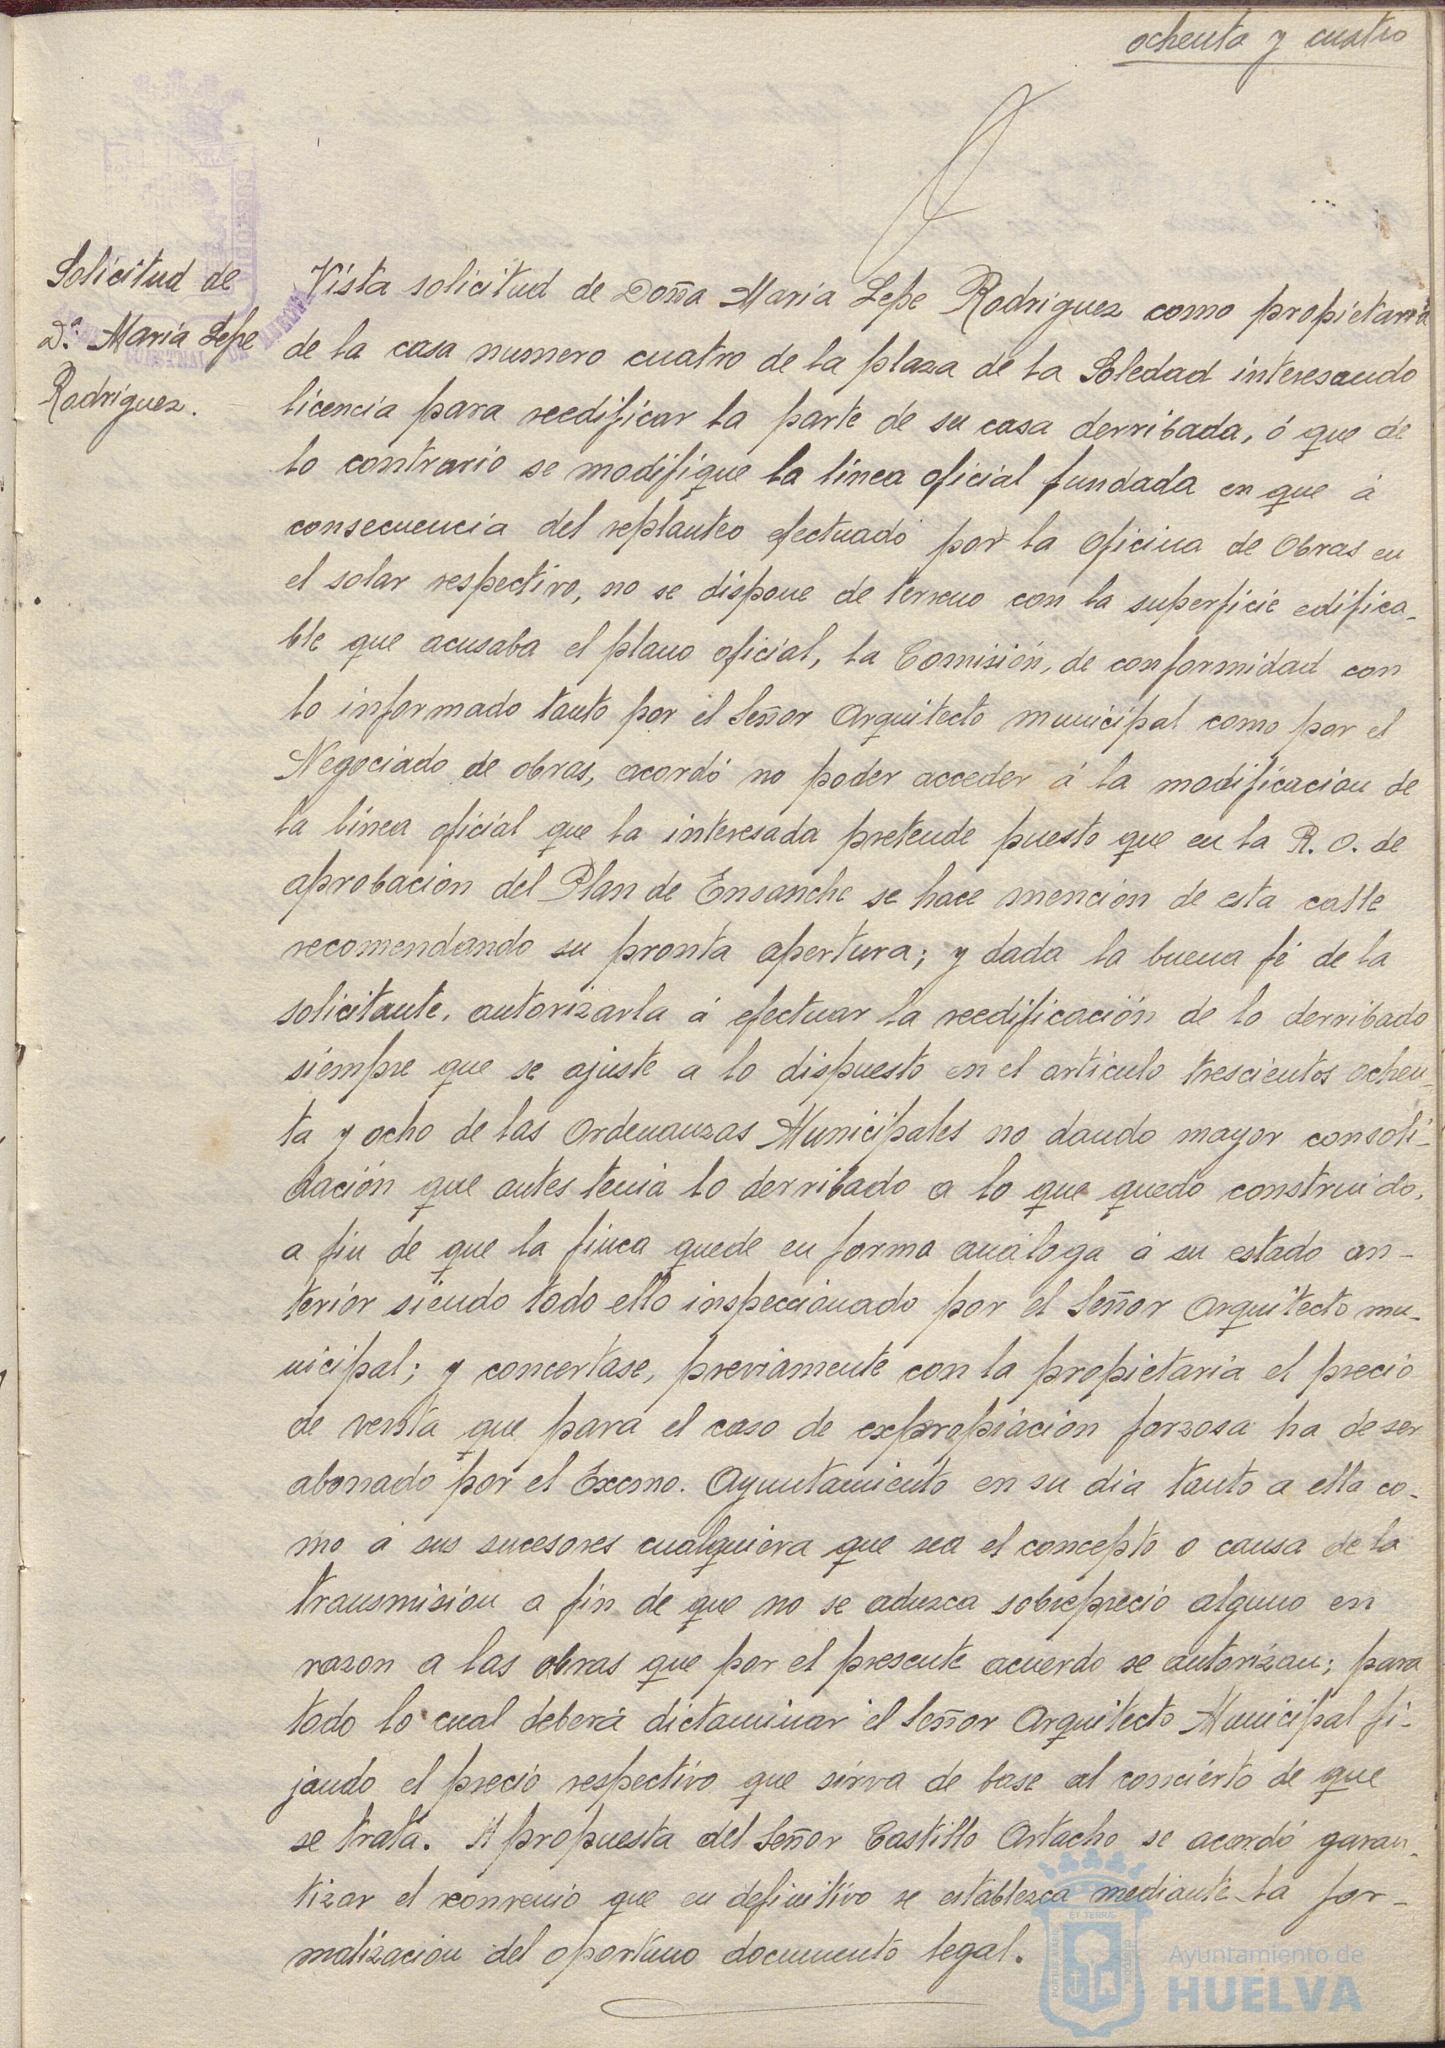 ochenta y cuatro
Solicitud de
Dª. María Lepe
Rodriguez.
Vista solicitud de Doña María Lepe Rodriguez como propietaria
de la casa numero cuatro de la plaza de la Soledad interesando
licencia para reedificar la parte de su casa derribada, ó que de
lo contrario se modifique la línea oficial fundada en que á
consecuencia del replanteo efectuado por la oficina de Obras en
el solar respectivo, no se dispone de terreno con la superficie edifica-
ble que acusaba el plano oficial, la Comisión, de conformidad con
lo informado tanto por el Señor Arquitecto municipal como por el
Negociado de obras, acordó no poder acceder á la modificacion de
la línea oficial que la interesada pretende puesto que en la R. O. de
aprobación del Plan de Ensanche se hace mención de esta calle
recomendando su pronta apertura; y dada la buena fé de la
solicitante, autorizarla á efectuar la reedificación de lo derribado
siempre que se ajuste a lo dispuesto en el artículo trescientos ochen-
ta y ocho de las Ordenanzas Municipales no dando mayor consoli-
dación que antes tenia lo derribado a lo que quedo construido,
a fin de que la finca quede en forma análoga á su estado an-
terior siendo todo ello inspeccionado por el Señor Arquitecto mu-
nicipal; y concertase, previamente con la propietaria el precio
de venta que para el caso de expropiación forzosa ha de ser
abonado por el Excmo. Ayuntamiento en su dia tanto a ella co-
mo á sus sucesores cualquiera que sea el concepto o causa de la
transmision a fin de que no se aduzca sobreprecio alguno en
razon a las obras que por el presente acuerdo se autorizan; para
todo lo cual deberá dictaminar el Señor Arquitecto Municipal fi-
jando el precio respectivo que sirva de base al concierto de que
se trata. A propuesta del Señor Castillo Artacho se acordó garan-
tizar el convenio que en definitivo se establezca mediante la for-
malizacion del oportuno documento legal.
Ayuntamiento de
HUELVA